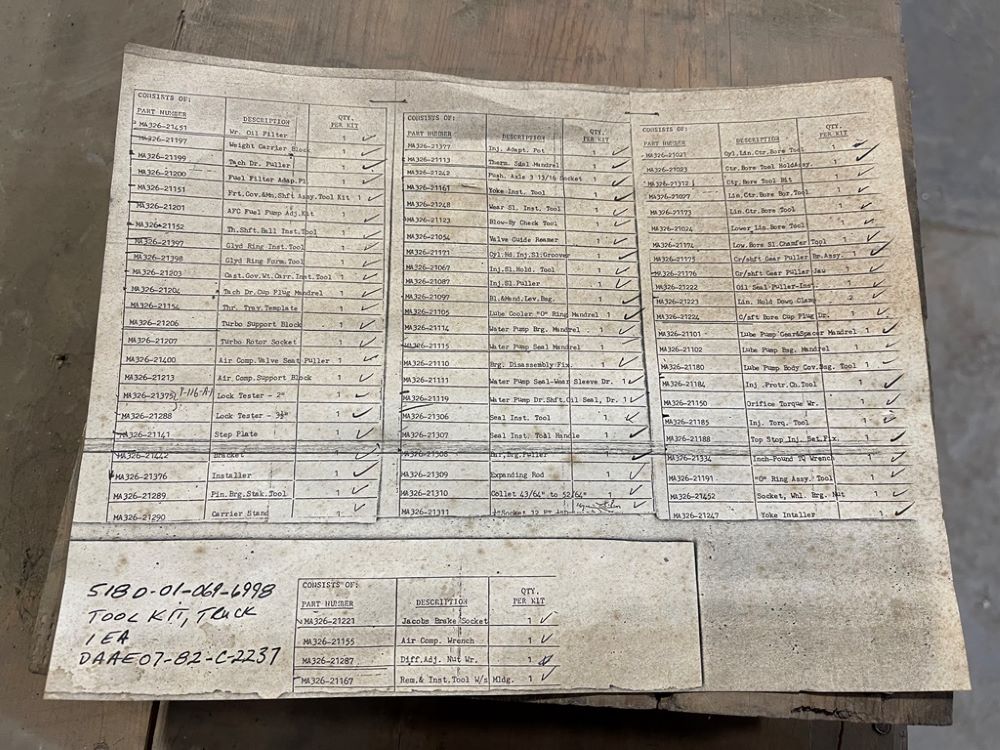 CONSISTS OF:
PART NUMBER DESCRIPTION QTY. PER KIT
MA326-21451 Wr. Oil Filter 1
MA326-21197 Weight Carrier Block 1
MA326-21199 Tach Dr. Puller 1
MA326-21200 Fuel Filter Adap.Pl 1
MA326-21151 Frt.Cov.&Mn.Shft Assy.Tool Kit 1
MA326-21201 AFC Fuel Pump Adj.Kit 1
MA326-21152 Th.Shft.Ball Inst.Tool 1
MA326-21397 Glyd Ring Inst.Tool 1
MA326-21398 Glyd Ring Form.Tool 1
MA326-21203 Cast.Gov.Wt.Carr.Inst.Tool 1
MA326-21204 Tach Dr.Cup Plug Mandrel 1
MA326-21154 Thr. Trav.Template 1
MA326-21206 Turbo Support Block 1
MA326-21207 Turbo Rotor Socket 1
MA326-21400 Air Comp.Valve Seat Puller 1
MA326-21213 Air Comp.Support Block 1
MA326-21375 Lock Tester - 2" 1
MA326-21288 Lock Tester - 3½" 1
MA326-21141 Step Plate 1
MA326-21442 Bracket 1
MA326-21376 Installer 1
MA326-21289 Pin.Brg.Stak.Tool 1
MA326-21290 Carrier Stand 1
CONSISTS OF:
PART NUMBER DESCRIPTION QTY. PER KIT
MA326-21377 Inj. Adapt. Pot 1
MA326-21113 Therm. Seal Mandrel 1
MA326-21242 Push. Axle 3 13/16 Socket 1
MA326-21161 Yoke Inst. Tool 1
MA326-21248 Wear Sl. Inst. Tool 1
MA326-21123 Blow-By Check Tool 1
MA326-21054 Valve Guide Reamer 1
MA326-21171 Cyl.Hd.Inj.Sl.Groover 1
MA326-21067 Inj.Sl.Hold. Tool 1
MA326-21087 Inj.Sl.Puller 1
MA326-21097 Bl.&Hand.Lev.Bsg. 1
MA326-21105 Lube Cooler "O" Ring Mandrel 1
MA326-21114 Water Pump Brg. Mandrel 1
MA326-21115 Water Pump Seal Mandrel 1
MA326-21110 Brg. Disassembly Fix. 1
MA326-21111 Water Pump Seal-Wear Sleeve Dr. 1
MA326-21119 Water Pump Dr.Shft.Oil Seal, Dr. 1
MA326-21306 Seal Inst. Tool 1
MA326-21307 Seal Inst. Tool Handle 1
MA326-21308 Puller 1
MA326-21309 Expanding Rod 1
MA326-21310 Collet 43/64" to 52/64" 1
MA326-21311
CONSISTS OF:
PART NUMBER DESCRIPTION QTY. PER KIT
MA326-21021 Cyl.Lin.Ctr.Bore Tool 1
MA326-21023 Ctr.Bore Tool HoldAssy. 1
MA326-21312 Ctr. Bore Tool Bit 1
MA326-21097 Lin.Ctr.Bore Bor.Tool 1
MA326-21173 Lin.Ctr.Bore Tool 1
MA326-21024 Lower Lin.Bore Tool 1
MA326-21174 Low.Bore Sl.Chamfer Tool 1
MA326-21175 Cr/shft Gear Puller Br.Assy. 1
MA326-21176 Cr/shft Gear Puller Jaw
MA326-21222 Oil Seal Puller-Inst. 1
MA326-21223 Lin. Hold Down Clamp 2
MA326-21224 C/sft Bore Cup Plug Dr. 1
MA326-21101 Lube Pump Gear&Spacer Mandrel 1
MA326-21102 Lube Pump Bsg. Mandrel 1
MA326-21180 Lube Pump Body Cov.Bsg. Tool 1
MA326-21184 Inj.Protr.Ch.Tool 1
MA326-21150 Orifice Torque Wr. 1
MA326-21185 Inj. Torq. Tool 1
MA326-21188 Top Stop Inj. Set.Fix. 1
MA326-21334 Inch-Pound TQ Wrench 1
MA326-21191 "O" Ring Assy. Tool 1
MA326-21452 Socket, Whl. Brg. Nut 1
MA326-21247 Yoke Intaller 1
5180-01-069-6998
TOOL KIT, TRUCK
1 EA
DAAE07-82-C-2237
CONSISTS OF:
PART NUMBER DESCRIPTION QTY. PER KIT
MA326-21221 Jacobs Brake Socket 1
MA326-21155 Air Comp. Wrench 1
MA326-21287 Diff.Adj. Nut Wr. 1
MA326-21167 Rem.& Inst.Tool W/s Mldg. 1